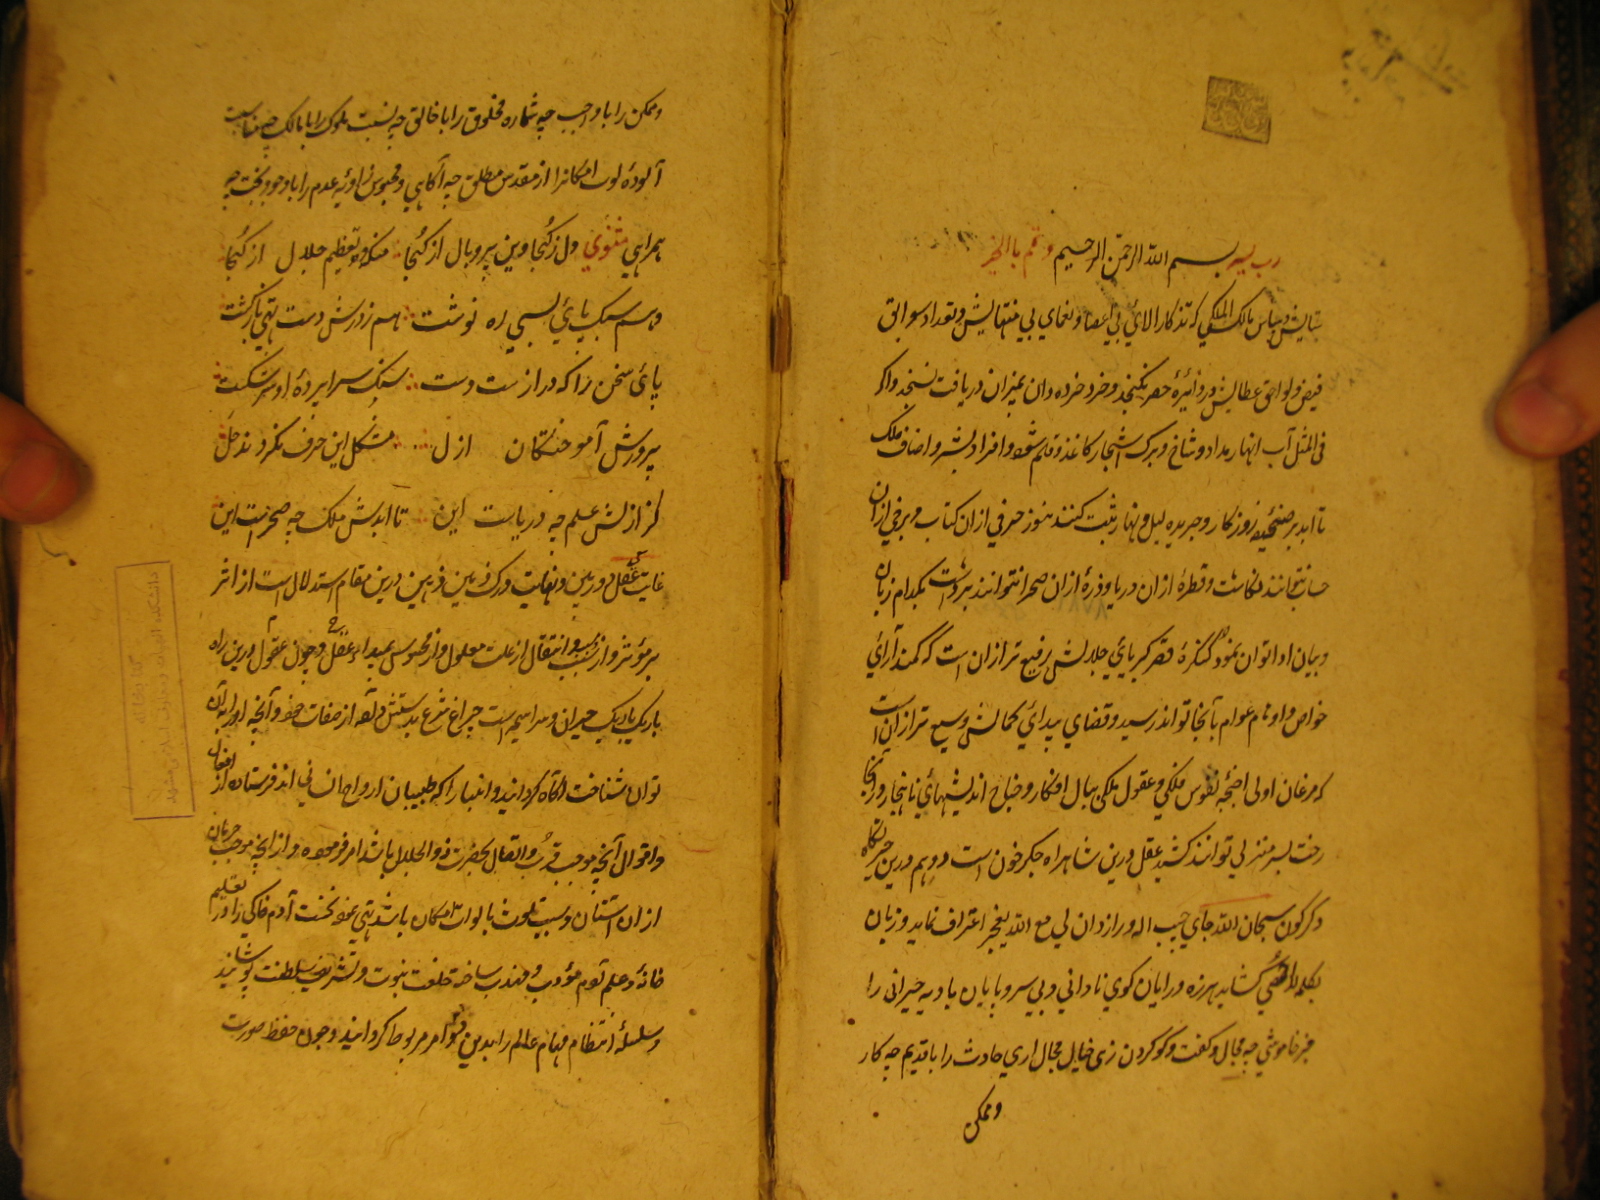 رب یسر بسم الله الرحمن الرحیم و تمم بالخیر
ستایش و سپاس مالک الملکی که تذکار الای بی احصا و نعمای بی منتهایش و تعداد سوابق
فیض و لواحق عطایش در دائرهٔ حصر نگنجد و خرد خرده دان بمیزان دریافت نسنجد و اگر
فی المثل آب انهار مداد و شاخ و برک اشجار کاغذ و قلم شود و افراد بشر و اصناف ملک
تا ابد بر صفحیه روزکار و جریده لیل و نهار ثبت کنند هنوز حرفی از ان کتاب و برخی از ان
حساب نتوانند نکاشت و قطرهٔ از ان دریا و ذرهٔ از ان صحرا نتوانند برداشت بکدام زبان
و بیان ادا توان نمود کنکرهٔ قصر کبریائی جلالش رفیع تر از ان است که کمند آرای
خواص و اوهام عوام بآنجا تواند رسید و فضای بیدای کمالش وسیع تر از ان است
که مرغان اولی اجنحه نفوس ملکی و عقول فلکی ببال افکار و جناح اندیشهای ناهنجار در آنجا
رخت بسر منزلی توانند کشید عقل درین شاهراه جکر خون است و وهم درین حیرتگاه
دکرکون سبحان الله جای حبیب اله و رازدان لی مع الله بعجز اعتراف نماید و زبان
بکلمه لا احصی کشاید هرزه درایان کوی نادانی و بی سر و پایان بادیه حیرانی را
جز خاموشی چه مجال و کفت و کو کردن زهی خیال محال اری حادث را با قدیم چه کار
و ممکن
و ممکن را با واجب چه شماره مخلوق را با خالق چه نسبت مملوک را با مالک چه مناسبت
آلودهٔ لوث امکانرا از مقدس مطلق چه آکاهی و محبوس زاویه عدم را با وجود بحت چه
همراهی مثنوی دل ز کجا وین پر و بال از کجا من که و تعظیم جلال از کجا
وهم سبک پای بسی ره نوشت هم ز درش دست تهی بازکشت
پای سخن را که دراز ست دست سنک سراپردهٔ او سر شکست
پرورش آموختکان ازل مشکل این حرف نکردند حل
کز ازلش علم چه دریاست این تا ابدش ملک چه صحراست این
غایت سعی عقل دوربین و نهایت درک ذهین درین مقام استدلال است از اثر
بر مؤثر و از سبب و انتقال از علت معلول و از محسوس بمبداء عقل و چون عقول درین راه
باریک تاریک حیران و سراسیمه است چراغ شرع بدستش داده از صفات خود آنچه او را به آن
توان شناخت آکاه کردانید و انبیا را که طبیبان ارواح انسانی اند فرستاده از افعال
و اقوال آنچه موجب قرب و اتصال بحضرت ذو الجلال باشد امر فرموده و از آنچه موجب حرمان
از ان آستان و سبب تلوث بالواث امکان باشد نهی نمود نخست آدم خاکی را در تعلیم
خانهٔ و علم آدم مؤدب و مهذب ساخته خلعت نبوت و تشریف سلطنت پوشانید
و سلسلهٔ انتظام مهام عالم را بدین دو امر مربوط کردانید و چون حفظ صورت
دانشکده الهیات و معارف اسلامی مشهد
کتابخانه